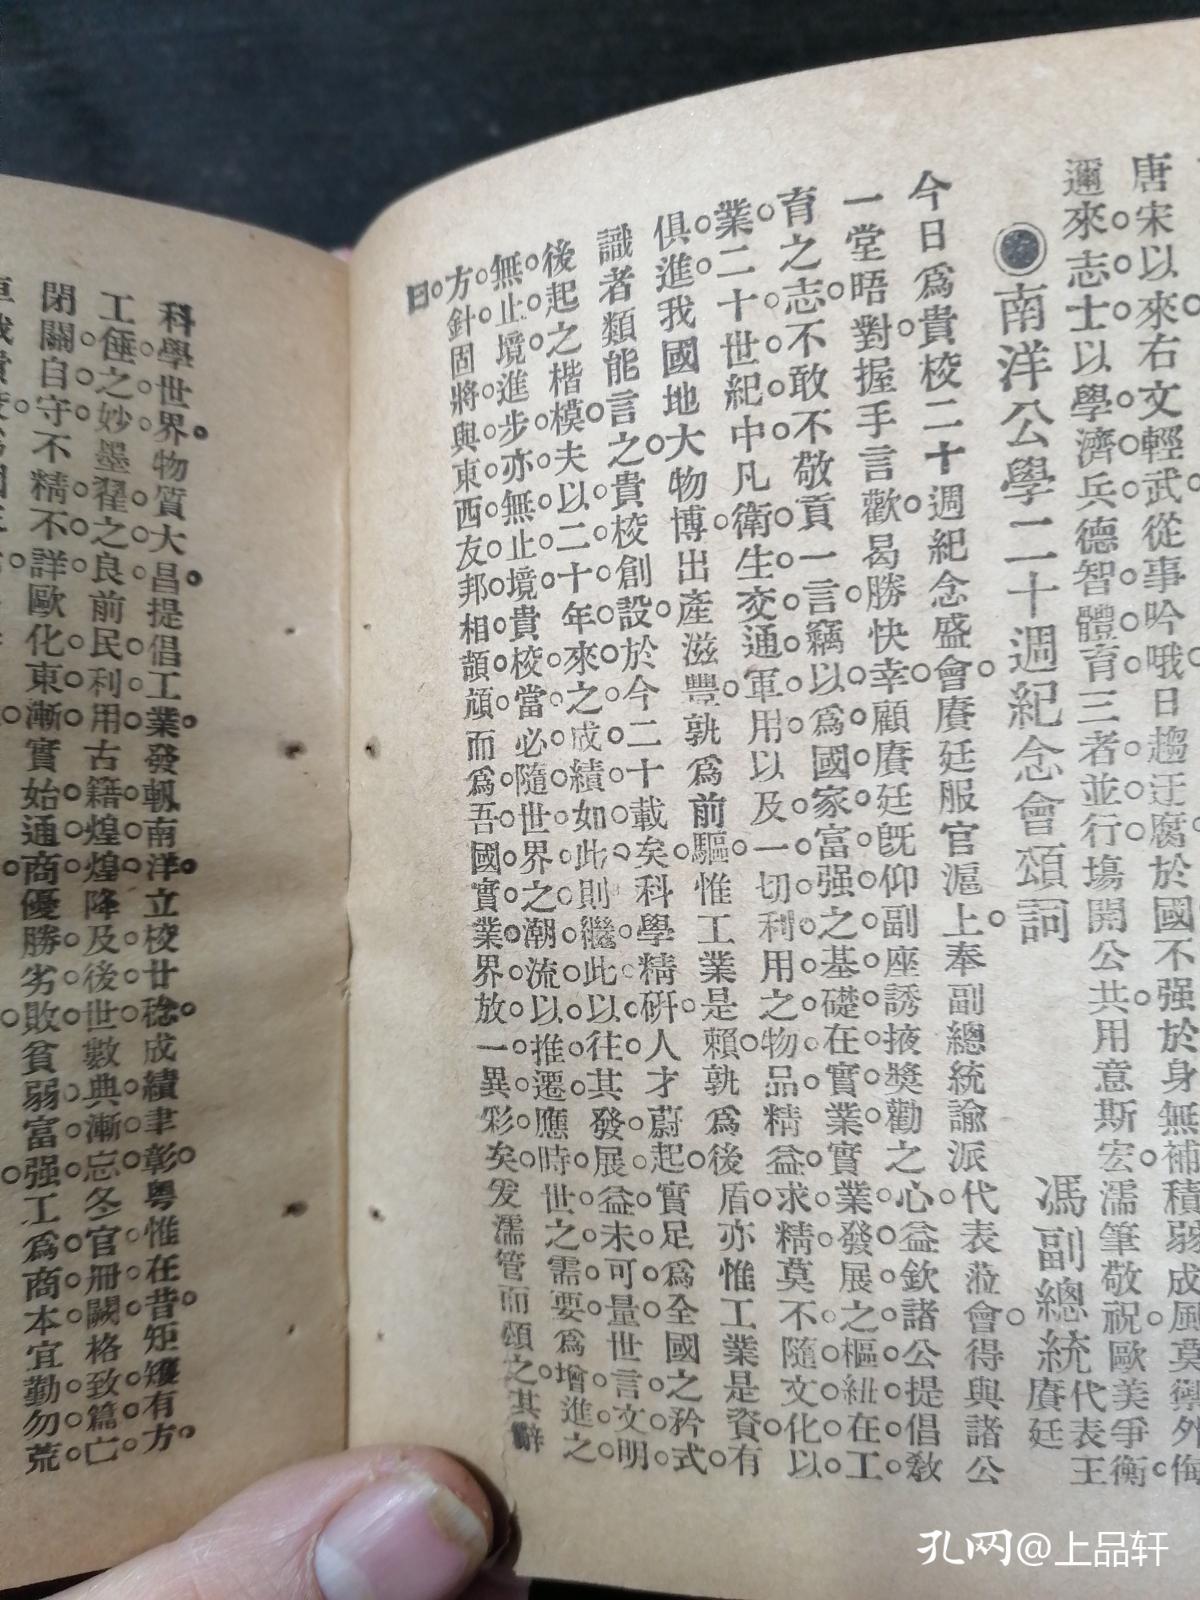 唐宋以來右文輕武從事吟哦日趨迂腐於國不强於身無補積弱成風莫禦外侮
邇來志士以學濟兵德智體育三者並行塲開公共用意斯宏濡筆敬祝歐美爭衡
◉南洋公學二十週紀念會頌詞
馮副總統代表王賡廷
今日爲貴校二十週紀念盛會賡廷服官滬上奉副總統諭派代表蒞會得與諸公
一堂晤對握手言歡曷勝快幸顧賡廷旣仰副座誘掖獎勸之心益欽諸公提倡敎
育之志不敢不敬貢一言竊以爲國家富强之基礎在實業實業發展之樞紐在工
業二十世紀中凡衛生交通軍用以及一切利用之物品精益求精莫不隨文化以
俱進我國地大物博出產滋豐孰爲前驅惟工業是賴孰爲後盾亦惟工業是資有
識者類能言之貴校創設於今二十載矣科學精研人才蔚起實足爲全國之矜式
後起之楷模夫以二十年來之成績如此則繼此以往其發展益未可量世言文明
無止境進步亦無止境貴校當必隨世界之潮流以推遷應時世之需要爲增進之
方針固將與東西友邦相頡頏而爲吾國實業界放一異彩矣爰濡管而頌之其辭
曰
科學世界物質大昌提倡工業發軔南洋立校廿稔成績聿彰粵惟在昔矩矱有方
工倕之妙墨翟之良前民利用古籍煌煌降及後世數典漸忘冬官冊闕格致篇亡
閉關自守不精不詳歐化東漸實始通商優勝劣敗貧弱富强工爲商本宜勤勿荒
孔网@上品轩